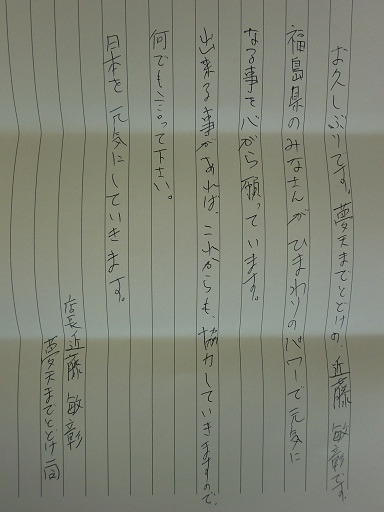 お久しぶりです。夢天までとどけの、近藤 敏彰です。
福島県のみなさんが ひまわりのパワーで元気に
なる事を心から願っています。
出来る事があれば、これからも、協力していきますので、
何でも言って下さい。
日本を 元気にしていきます。
店長 近藤 敏彰
夢天までとどけ 一同